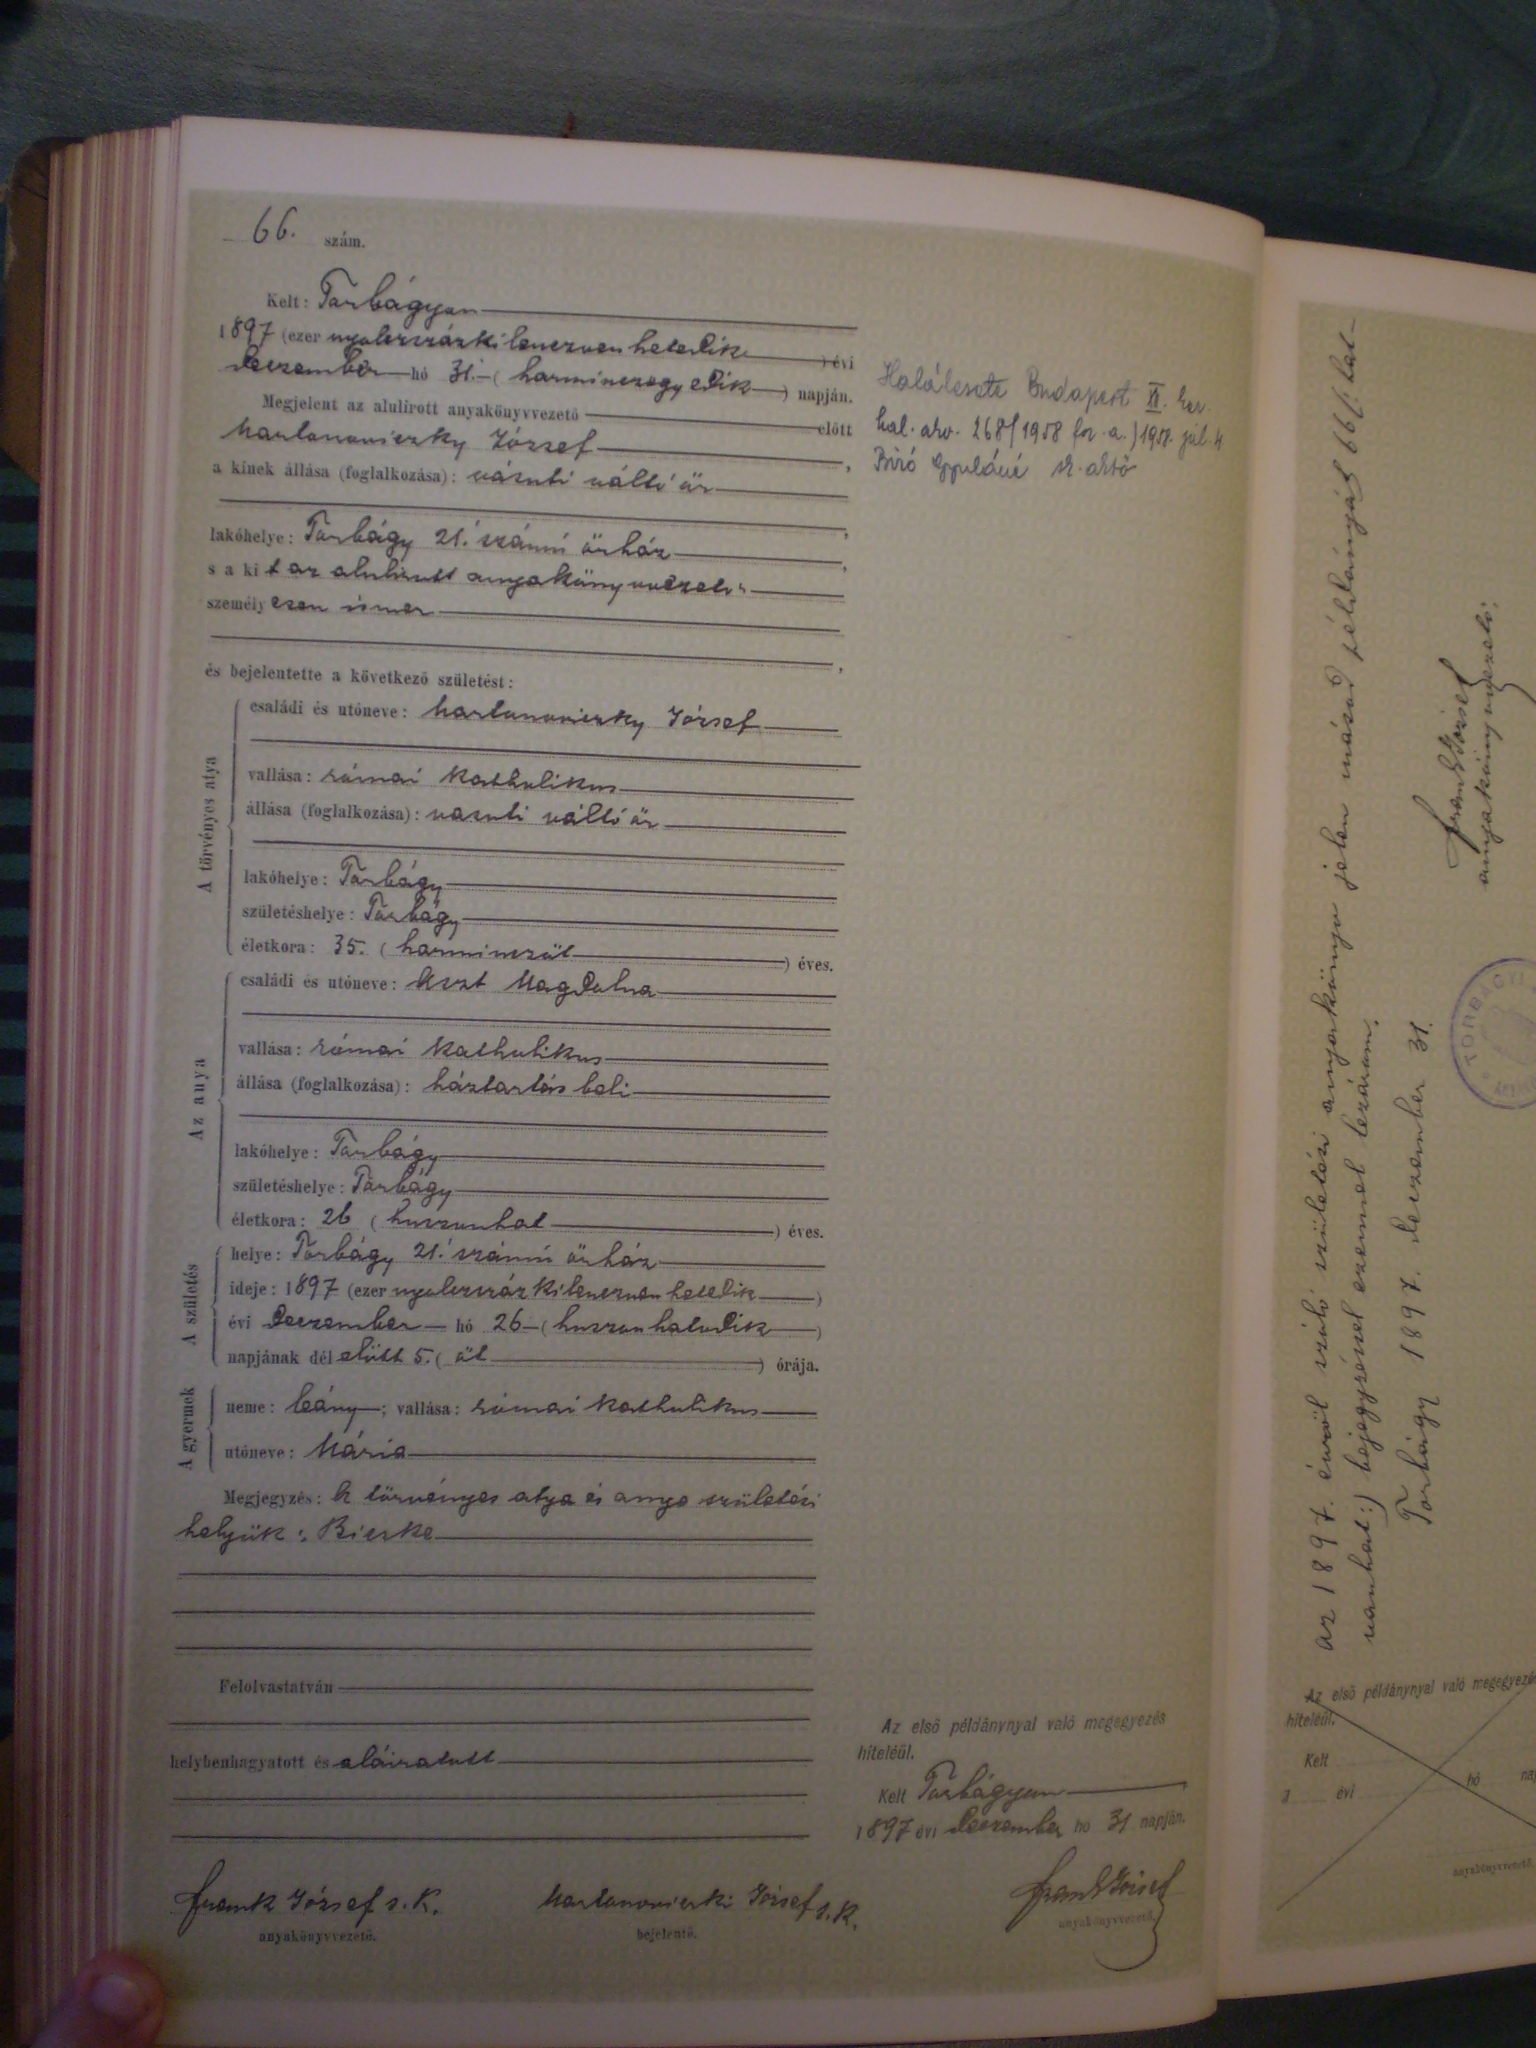 66. szám.
Kelt: Torbágyon
1897 (ezer nyolczszázkilenczvenhetedik) évi
deczember hó 31. (harminczegyedik) napján.
Megjelent az alulirott anyakönyvvezető előtt
Martonoviczky József,
a kinek állása (foglalkozása): vasuti váltó őr
,
lakóhelye: Torbágy 21. számú őrház,
s a kit az alulirott anyakönyvvezető
személyesen ismer
,
és bejelentette a következő születést:
A törvényes atya
családi és utóneve: Martonoviczky József
vallása: római katholikus
állása (foglalkozása): vasuti váltó őr
lakóhelye: Torbágy
születéshelye: Torbágy
életkora: 35. (harminczöt) éves.
Az anya
családi és utóneve: Uszt Magdolna
vallása: római katholikus
állása (foglalkozása): háztartás beli
lakóhelye: Torbágy
születéshelye: Torbágy
életkora: 26 (huszonhat) éves.
A születés
helye: Torbágy 21. számú őrház
ideje: 1897 (ezer nyolczszázkilenczvenhetedik)
évi deczember hó 26 (huszonhatodik)
napjának dél előtt 5. (öt) órája.
A gyermek
neme: leány; vallása: római katholikus
utóneve: Mária
Megjegyzés: A törvényes atya és anya születési
helyük: Bicske
Felolvastatván
helybenhagyatott és aláiratott
Frank József s. k.
anyakönyvvezető.
Martonoviczki József s. k.
bejelentő.
Halálesete Budapest XI. ker.
hal. akv. 268/1958 fol. a.) 1958. júl. 4
Biró Gyuláné
Az első példánynyal való megegyezés
hiteléül.
Kelt Torbágyon
1897 évi deczember hó 31 napján.
Frank József
anyakönyvvezető.
az 1897. évről szóló születési anyakönyv jelen másod példányát 66 /: hat-
vanhat :/ bejegyzéssel ezennel lezárom.
Torbágy 1897. deczember 31.
Frank József
anyakönyvvezető.
TORBÁGY
Az első példánynyal való megegyezés
hiteléül.
Kelt
évi hó
anyakönyvvezető.